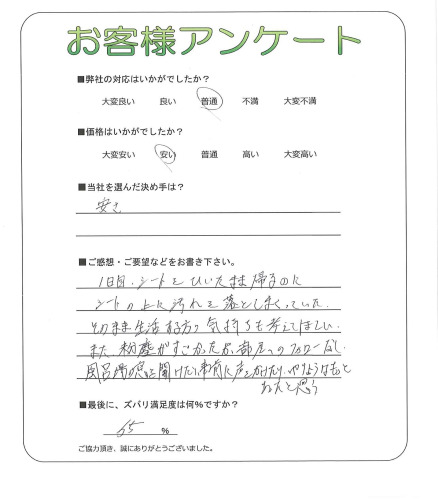 お客様アンケート
■弊社の対応はいかがでしたか？
大変良い 良い 普通 不満 大変不満
■価格はいかがでしたか？
大変安い 安い 普通 高い 大変高い
■当社を選んだ決め手は？
安さ
■ご感想・ご要望などをお書き下さい。
1日目、シートをひいたまま帰るのに
シートの上に汚れを落としまくっていた。
そのまま生活する方の気持ちも考えてほしい。
また、粉塵がすごかったが、部屋へのフォローなし。
風呂場の窓を開けたり、事前に声をかけたり、やりようなもっと
あったと思う
■最後に、ズバリ満足度は何％ですか？
65 ％
ご協力頂き、誠にありがとうございました。